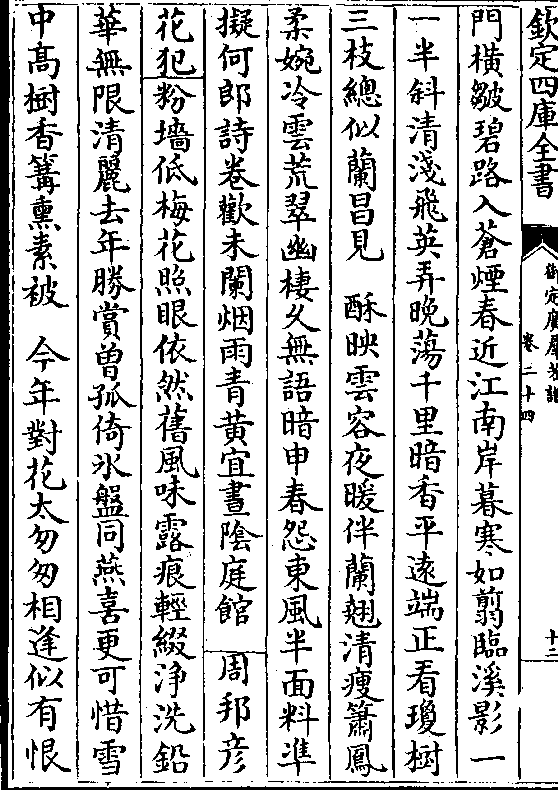 欽定四庫全書
御定廣羣芳譜
卷二十四
十二
門橫皺碧路入蒼煙春近江南岸暮寒如翦臨溪影一
一半斜清淺飛英弄晚蕩千里暗香平遠端正看瓊樹
三枝總似蘭昌見　酥映雲容夜暖伴蘭翹清瘦簫鳳
柔婉冷雲荒翠幽棲久無語暗申春怨東風半面料凖
擬何郎詩卷歡未闌烟雨青黄宜晝陰庭館　周邦彦
花犯粉墻低梅花照眼依然舊風味露痕輕綴淨洗鉛
華無限清麗去年勝賞曽孤倚氷盤同燕喜更可惜雪
中高樹香篝熏素被　今年對花太匆匆相逢似有恨